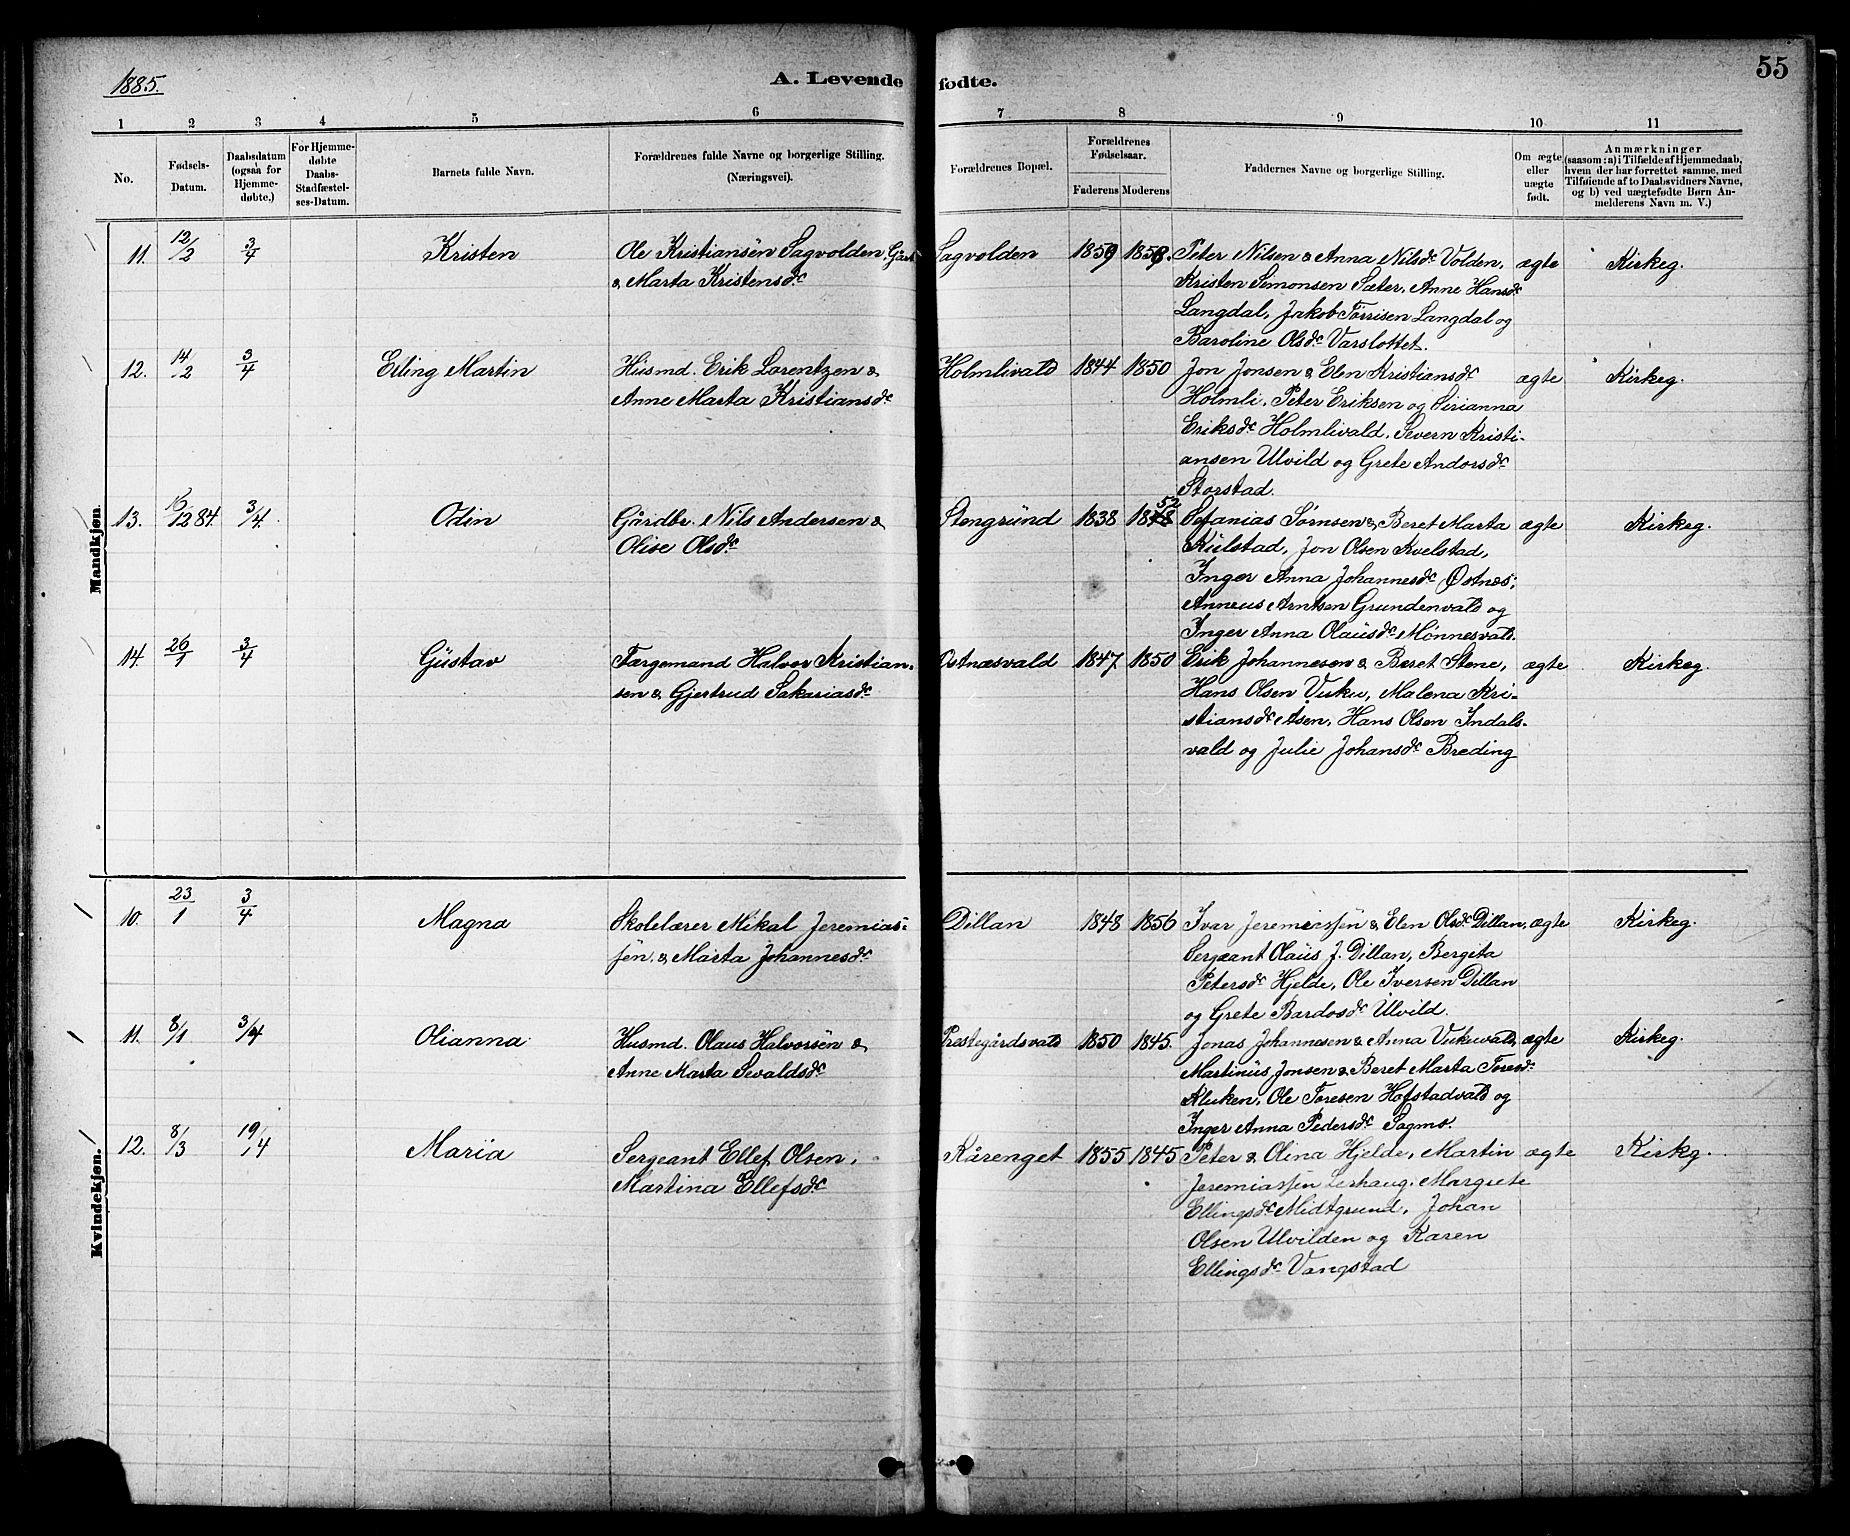 1885.
A. Levende fødte.
55
1 2 3 4 5 6 7 8 9 10 11
No.
Fødsels-
Datum.
Daabsdatum
(ogsaa for
Hjemme-
døbte.)
For Hjemme-
døbte
Daabs-
Stadfæstel-
ses-Datum.
Barnets fulde Navn.
Forældrenes fulde Navne og borgerlige Stilling.
(Næringsvei).
Forældrenes Bopæl.
Forældrenes
Fødselsaar.
Faderens Moderens
Faddernes Navne og borgerlige Stilling.
Om ægte
eller
uægte
født.
Anmærkninger
(saasom: a) i Tilfælde af Hjemmedaab,
hvem der har forrettet samme, med
Tilføiende af to Daabsvidners Navne,
og b) ved uægtefødte Børn An-
melderens Navn m. V.)
Mandkjøn.
11. 12/2 3/4 Kristen Ole Kristiansen Sagvolden, Sagvolden 1859 Peter Nilsen & Anna Nilsdr Volden, ægte Kirkeg.
& Marta Kristensdr Kristen Simonsen Sæter, Anne Hansdr
Langdal, Jakob Tørrisen Langdal og
Baroline Olsdr Varslottet.
12. 14/2 3/4 Elling Martin Husmd. Erik Lorentzen & Holmlivald 1844 1850 Jon Jonsen & Elen Kristiansdr ægte Kirkeg.
Anne Marta Kristiansdr Holmli, Peter Eriksen og Sirianna
Eriksdr Holmlivald, Severn Kristi-
ansen Ulvild og Grete Andorsdr
Storstad.
13. 12 84. 3/4. Odin Gårdbr. Nils Andersen & Stengrund 1838 52 Sefanias Sørnsen & Beret Marta ægte Kirkeg.
Olise Olsdr Kulstad, Jon Olsen Kvelstad,
Inger Anna Johannesdr Østnes,
Anneus Arntsen Grundenvald og
Inger Anna Olausdr Mønnesvald.
14. 26/1 3/4 Gustav Færgemand Halvor Kristian- Østnæsvald 1847 1850 Erik Johannesen & Beret Stene, ægte Kirkeg.
sen & Gjertrud Sakariasdr Hans Olsen Vuku, Malena Kri-
stiansdr Åsen, Hans Olsen Indals-
vald og Julie Johansdr Breding
Kvindekjøn.
10. 23/1 3/4 Magna Skolelærer Mikal Jeremias- Dillan 1848 1856 Ivar Jeremiassen & Elen Olsdr Dillan, ægte Kirkeg.
sen, & Marta Johannesdr Sergeant Olaus J. Dillan, Bergita
Petersdr Hjelde, Ole Iversen Dillan
og Grete Bardosdr Ulvild.
11. 8/1 3/4 Olianna Husmd. Olaus Halvorsen & Prestegårdsvald 1850 1845. Jonas Johannesen & Anna Vukuvald, ægte Kirkeg.
Anne Marta Sevaldsdr Martinus Jonsen & Beret Marta Toresdr
Kluken, Ole Toresen Hofstadvald og
Inger Anna Pedersdr Sagmo.
12. 8/3 19/4 Maria Sergeant Ellef Olsen, Kårenget 1855 1845 Peter & Olina Hjelde, Martin ægte Kirkg.
Martina Ellefsdr Jeremiassen Lerhaug, Margrete
Ellingsdr Midtgrund, Johan
Olsen Ulvilden og Karen
Ellingsdr Vangstad